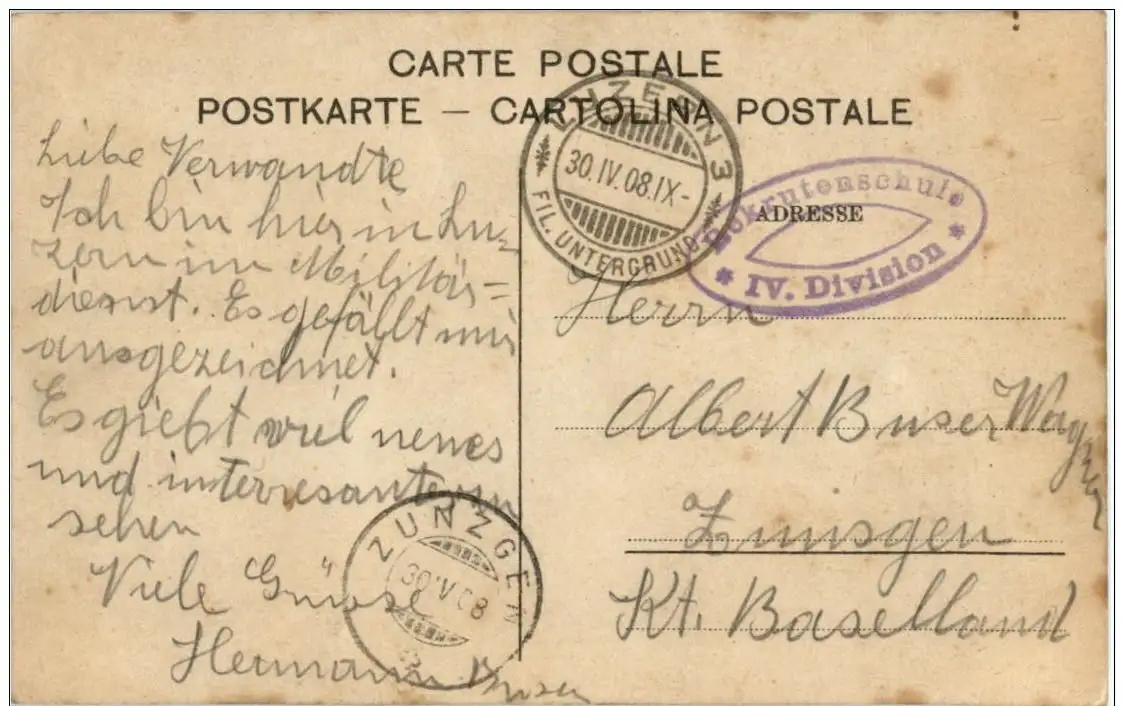 CARTE POSTALE
POSTKARTE – CARTOLINA POSTALE
LUZERN 3
30.IV.08.IX-
FIL. UNTERGRUND
Rekrutenschule
IV. Division
ADRESSE
Liebe Verwandte
Ich bin hier in Lu-
zern im Militär=
dienst. Es gefällt mir
ausgezeichnet.
Es giebt viel neues
und interresantes zu
sehen
Viele Grüsse
Hermann Buser
Herrn
Albert Buser Wagner
Zunsgen
Kt. Baselland
ZUNZGEN
30.IV.08